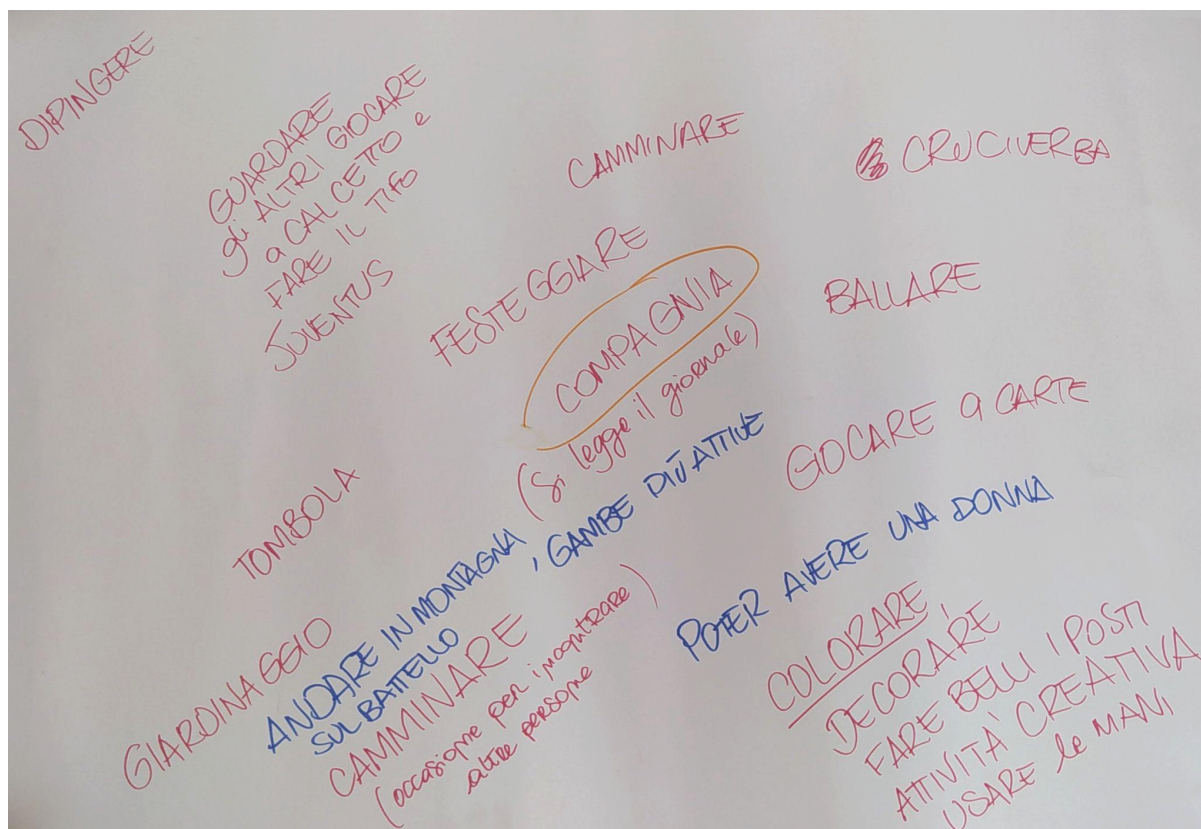 DIPINGERE
GUARDARE
gli ALTRI GIOCARE
a CALCETTO e
FARE IL TIFO
JUVENTUS
CAMMINARE
CRUCIVERBA
FESTEGGIARE
COMPAGNIA
(Si legge il giornale)
BALLARE
GIOCARE a CARTE
TOMBOLA
ANDARE IN MONTAGNA, GAMBE PIÙ ATTIVE
SUL BATTELLO
POTER AVERE UNA DONNA
GIARDINAGGIO
CAMMINARE
(occasione per incontrare)
altre persone
COLORARE,
DECORARE,
FARE BELLI I POSTI
ATTIVITÀ CREATIVA
USARE le MANI